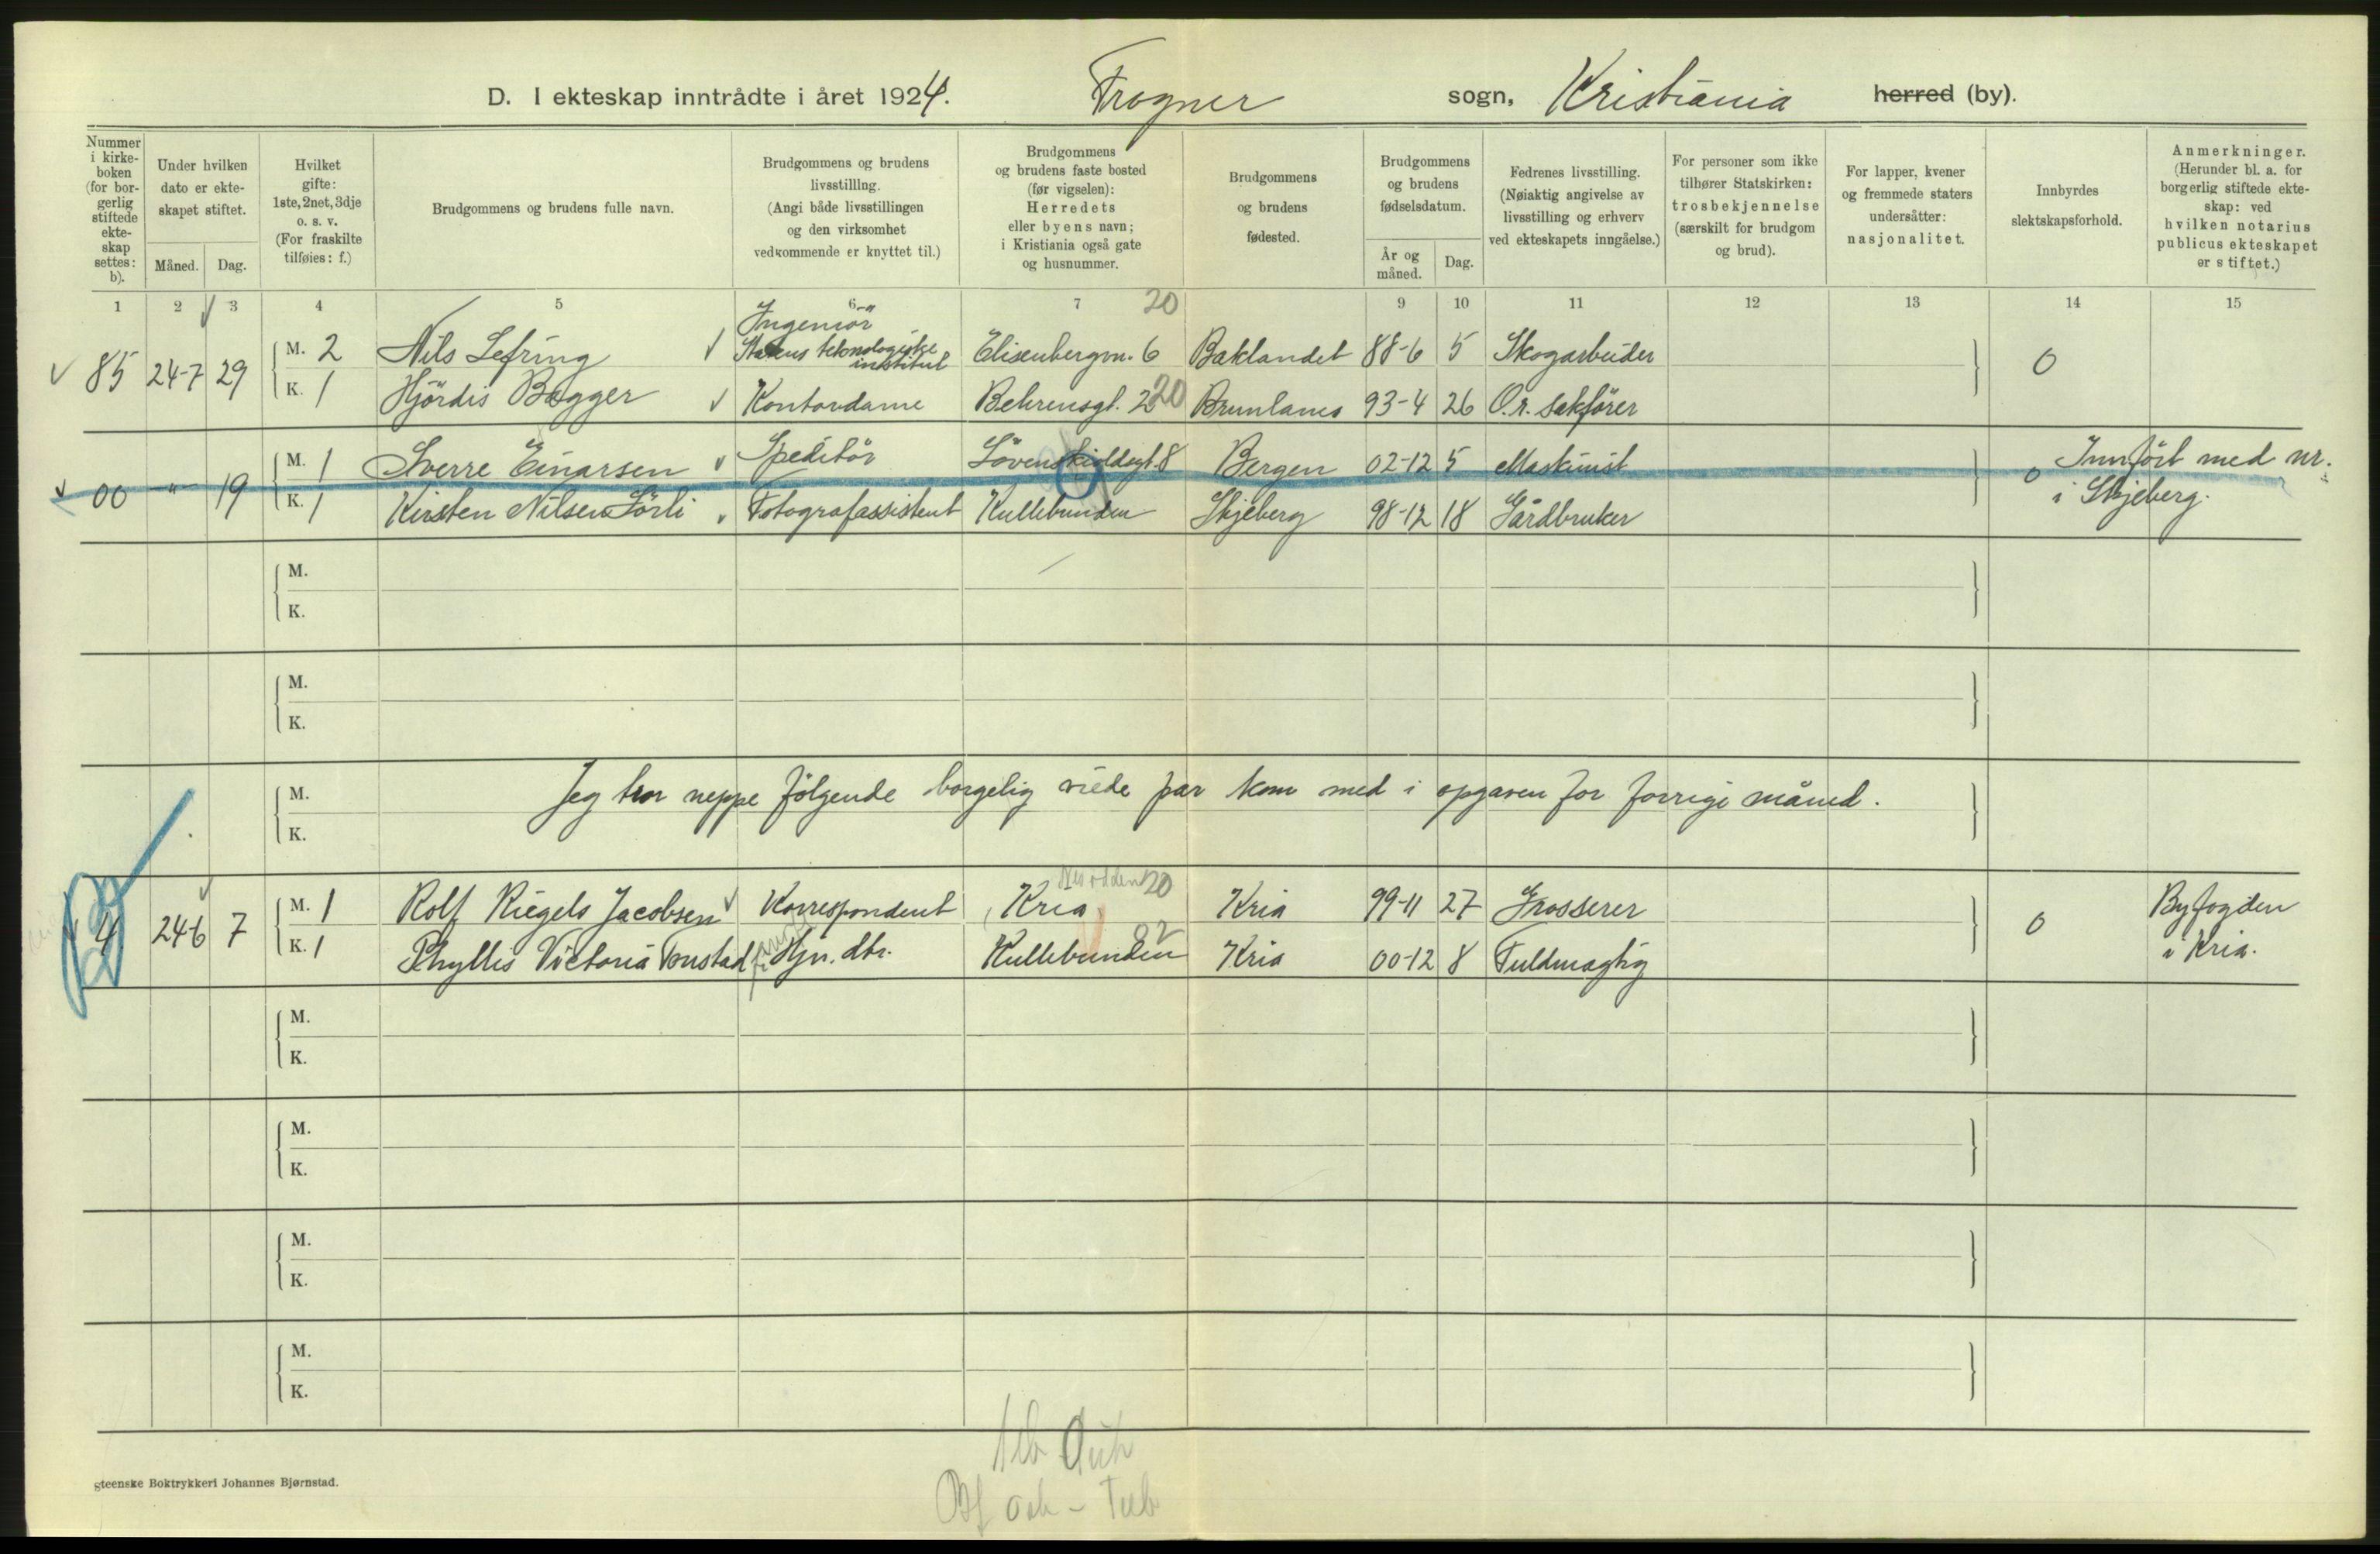 D. I ekteskap inntrådte i året 1924. Frogner sogn, Kristiania herred (by).
Nummer i kirke- boken (for bor- gerlig stiftede ekte- skap settes: b).
Under hvilken dato er ekte- skapet stiftet.
Måned. Dag.
Hvilket gifte: 1ste, 2net, 3dje o. s. v. (For fraskilte tilføies: f.)
Brudgommens og brudens fulle navn.
Brudgommens og brudens livsstilling. (Angi både livsstillingen og den virksomhet vedkommende er knyttet til.)
Brudgommens og brudens faste bosted (før vigselen): Herredets eller byens navn; i Kristiania også gate og husnummer.
Brudgommens og brudens fødested.
Brudgommens og brudens fødselsdatum.
År og måned. Dag.
Fedrenes livsstilling. (Nøiaktig angivelse av livsstilling og erhverv ved ekteskapets inngåelse.)
For personer som ikke tilhører Statskirken: trosbekjennelse (særskilt for brudgom og brud).
For lapper, kvener og fremmede staters undersåtter: nasjonalitet.
Innbyrdes slektskapsforhold.
Anmerkninger. (Herunder bl. a. for borgerlig stiftede ekte- skap: ved hvilken notarius publicus ekteskapet er stiftet.)
1 2 3 4 5 6 7 20 9 10 11 12 13 14 15
Ingeniør
85 24-7 29 M. 2 Nils Lefring Statens teknologiske institut Elisenbergvn. 6 Baklandet 88-6 5 Skogarbeider 0
K. 1 Hjördis Bagger Kontordame Behrensgt. 2 20 Brunlanes 93-4 26 O.r. sakförer
00 -"- 19 M. 1 Sverre Einarsen Speditör Lövenskioldsgt. 8 Bergen 02-12 5 Maskinist 0 Innfört med nr.
K. 1 Kirsten Nilsen Sörli Fotografassistent Kullebunden Skjeberg 98-12 18 Gårdbruker i Skjeberg.
M.
K.
M.
K.
M. Jeg tror neppe fölgende borgelig viede par kom med i opgaven for forrige måned.
K.
4 24-6 7 M. 1 Rolf Riegels Jacobsen Korrespondent Kria 20 Kria 99-11 27 Grosserer 0 Byfogden
K. 1 Phyllis Victoria Tonstad Hjv. dtr. Kullebunden Kria 00-12 8 Fuldmægtig i Kria.
M.
K.
M.
K.
M.
K.
M.
K.
steenske Boktrykkeri Johannes Bjørnstad.